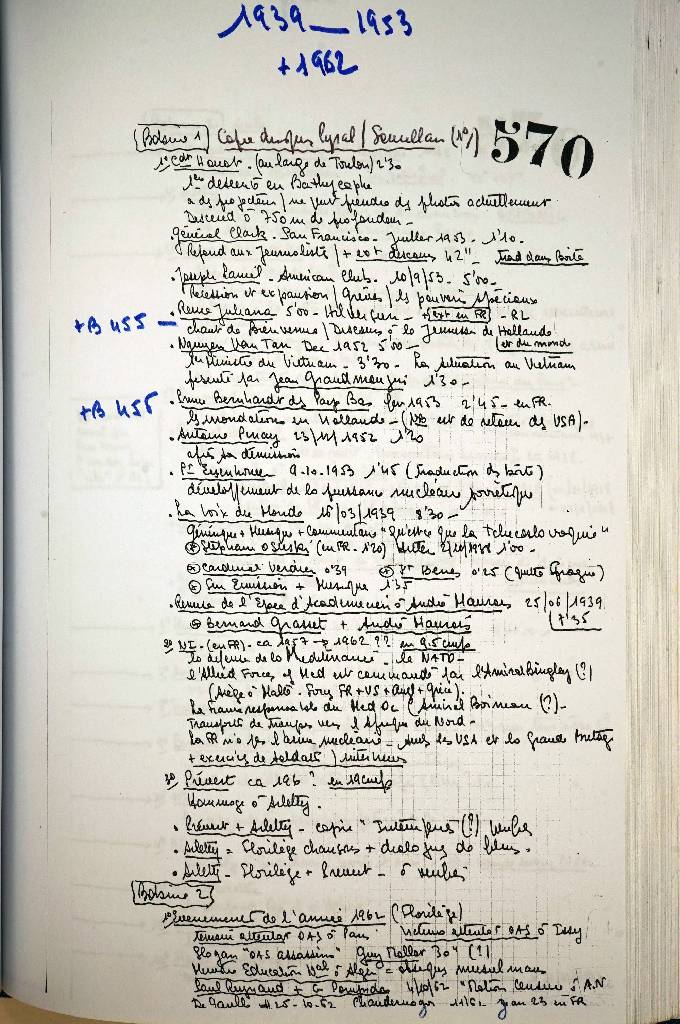 1939 — 1953
+ 1962
Bobine 1 Copie disques Pyral / (1%) 570
1° Cdt Houot. (au large de Toulon) 2'30
1ere descente en Bathyscaphe
a des projecteurs / ne peut prendre des photos actuellement
Descend à 750 m de profondeur -
. Général Clark. San Francisco - Juillet 1953 - 1'10 -
Répond aux journalistes / + ext discours 42" - trad dans Boite
. Joseph Laniel - American Club. 10/9/53. 5'00 -
Récession et expansion / Grèves / les pouvoirs spéciaux
+B 455 — . Reine Juliana 5'00 - Hilversum - + ext en FR - RL
chant de Bienvenue / Discours à la Jeunesse de Hollande
et du monde
. Nguyen Van Tan Dec 1952 5'00 -
1er Ministre du Vietnam - 3'30 - La situation au Vietnam
présenté par Jean Grandmougin 1'30 -
+B 455 . Prince Bernhardt des Pays Bas fev 1953 2'45 - en FR.
Les inondations en Hollande - ( est de retour des USA) -
. Antoine Pinay 23/ /1952 1'20
après sa démission
. Pt Eisenhower 9-10-1953 1'45 (traduction ds boite)
développement de la puissance nucléaire soviétique
. La Voix du Monde 15/03/1939 8'30 -
Générique + Musique + commentaire "Qu'est ce que la Tchecoslovaquie"
+ Stephan Osusky (en FR - 1'20) Hitler 1938 1'00 -
+ Cardinal Verdier 0'39 + Pt Benes 0'25 (quitte )
+ fin Emission + Musique 1'35
. Remise de l'Epée d'Academicien à André Maurois 25/06/1939
+ Bernard Grasset + André Maurois 7'35
2°/ NI - (en FR) - ca 1957 → 1962 ?? en 9.5 cm/s
la defense de la Mediterranée - la NATO -
l'Allied Forces of Med est commandé par l'Amiral Bingley (?)
(siège à Malte - Forces FR + US + Angl + Grèce).
La France responsable du Med Oc (Amiral Boineau (?) -
Transports de troupes vers l'Afrique du Nord -
La FR n'a pas l'arme nucléaire - Mais les USA et la Grande Bretag
+ exercices de soldats / interviews
3°/ Prévert ca 196 ? en 19 cm/s
Hommage à Arletty.
. Prévert + Arletty - copie " (?)
. Arletty = Florilège chansons + dialogues de films.
. Arletty - Florilège + Prévert - à
Bobine 2
1° Evenements de l'année 1962 (Florilège)
témoin attentat OAS à Paris Victime attentat OAS à Issy
Slogan "OAS assassins" Guy Mollet 30" (?)
Ministre Education Nal à Alger = obsèques musulmans
Paul Reynaud + G Pompidou 4/10/62 "Motion Censure à A.N
De Gaulle 25-10-62 Chandernagor 11/62 Jean 23 en FR